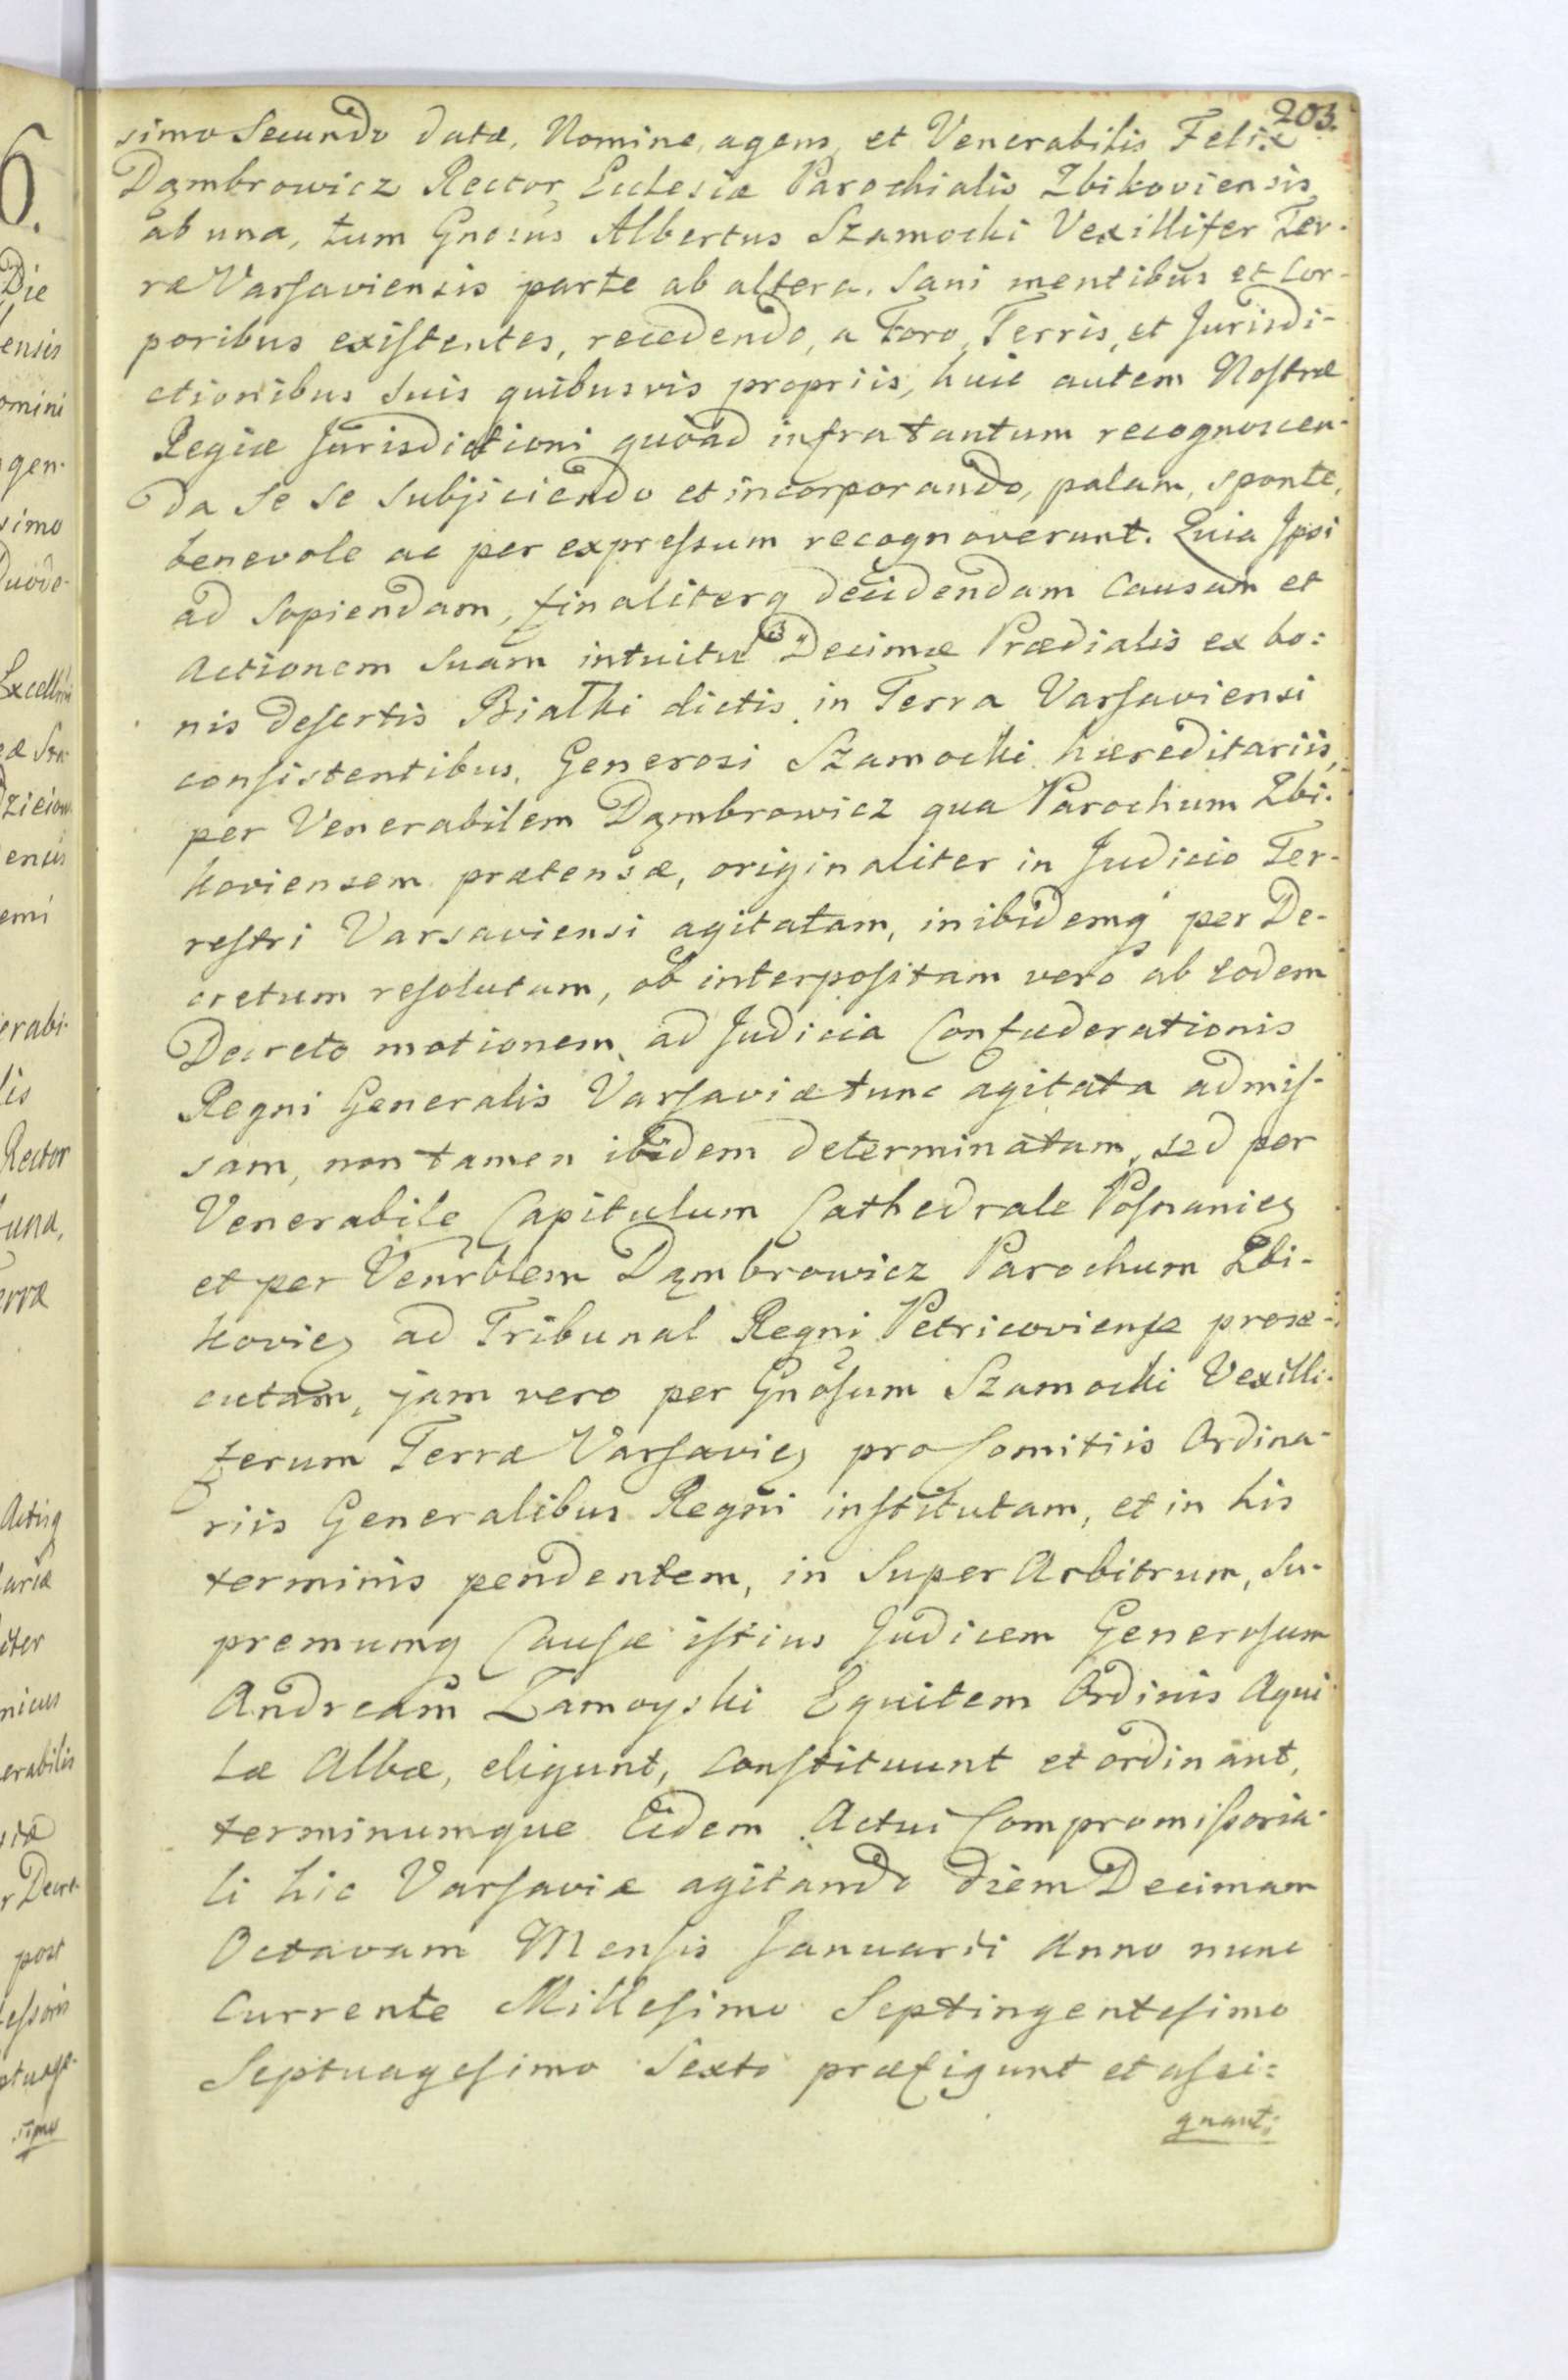 203.
simo Secundo datæ, Nomine agens, et Venerabilis Felix
Dąmbrowicz Rector Ecclesiæ Parochialis Zbikoviensis
ab una, tum Gnosus Albertus Szamocki Vexillifer Ter-
ræ Varsaviensis parte ab altera. Sani mentibus et Cor-
poribus existentes, recedendo, a Foro, Terris, et Jurisdi-
ctionibus suis quibusvis propriis, huic autem Nostræ
Regiæ Jurisdictioni quoad infra tantum recognoscen-
da se se subjiciendo et incorporando, palam, sponte,
benevole ac per expressum recognoverunt. Quia Ipsi
ad sopiendam, finaliterq decidendam Causam et
Actionem suam intuitu Decimæ Prædialis ex bo:
nis desertis Białki dictis in Terra Varsaviensi
consistentibus, Generosi Szamocki hæreditariis,
per Venerabilem Dąmbrowicz qua Parochum Zbi-
koviensem prætensæ, originaliter in Judicio Ter-
restri Varsaviensi agitatam, inibidemq per De-
cretum resolutam, ob interpositam vero ab eodem
Decreto motionem, ad Judicia Confæderationis
Regni Generalis Varsaviæ tunc agitata admis-
sam, non tamen ibidem determinatam, sed per
Venerabile Capitulum Cathedrale Posnaniez
et per Venrblem Dąmbrowicz Parochum Zbi-
koviez ad Tribunal Regni Petricoviense prose-
cutam, jam vero per Gnosum Szamocki Vexilli-
ferum Terræ Varsaviez pro Comitiis Ordina-
riis Generalibus Regni institutam, et in his
terminis pendentem, in Super Arbitrum, Su-
premumq Causæ istius Judicem Generosum
Andream Zamoyski Equitem Ordinis Aqui
læ Albæ, eligunt, constituunt et ordinant,
terminumque Eidem Actui Compromissoria-
li hic Varsaviæ agitando diem Decimam
Octavam Mensis Januarii Anno nunc
Currente Millesimo Septingentesimo
Septuagesimo Sexto præfigunt et assi:
gnant;